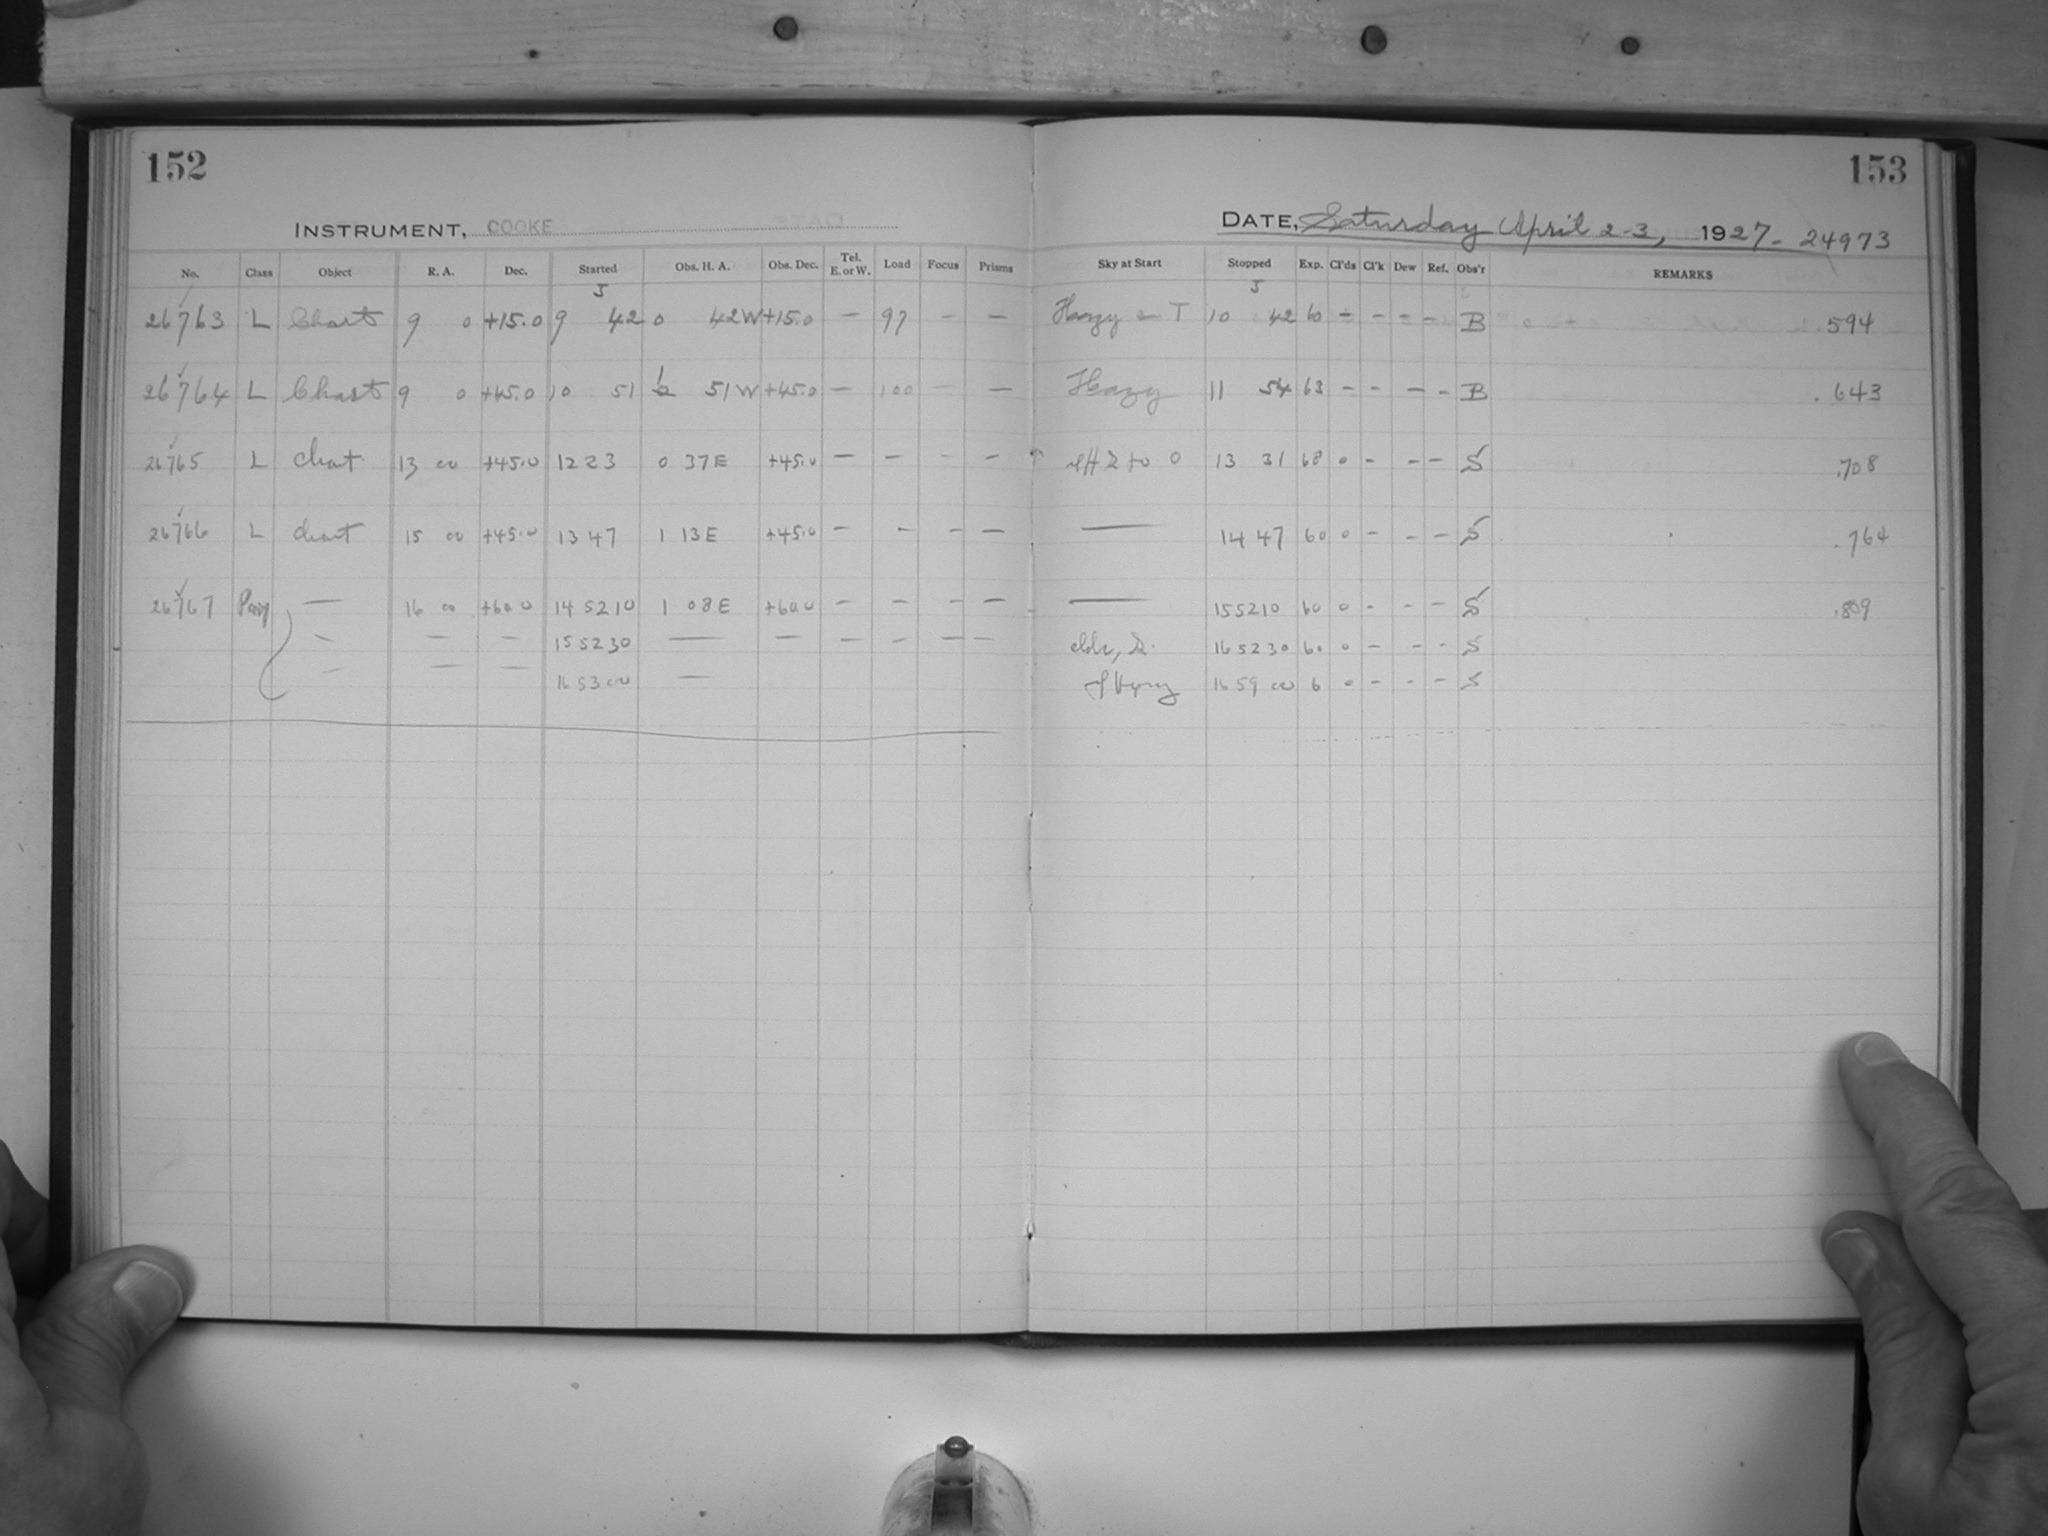 152
INSTRUMENT, COOKE
No. Class Object R. A. Dec. Started Obs. H. A. Obs. Dec. Tel. E. or W. Load Focus Prisms
26763 L Chart 9 0 +15.0 9 42 0 42W +15.0 — 97 — —
26764 L Chart 9 0 +45.0 10 51 1 51W +45.0 — 100 — —
26765 L Chart 13 00 +45.0 12 23 0 37E +45.0 — — — —
26766 L Chart 15 00 +45.0 13 47 1 13E +45.0 — — — —
26767 — 16 00 +60.0 14 52 10 1 08E +60.0 — — — —
— — — 15 52 30 — — — — — —
— — — 16 53 00 —
153
DATE, Saturday April 2-3, 1927- 24973
Sky at Start Stopped Exp. Cl'ds Cl'k Dew Ref. Obs'r REMARKS
Hazy T 10 42 60 – – – – B .594
Hazy 11 54 63 – – – – B .643
2 to 0 13 31 68 0 – – – S .708
— 14 47 60 0 – – – S .764
— 15 52 10 60 0 – – – S .809
16 52 30 60 0 – – – S
16 59 00 6 0 – – – S